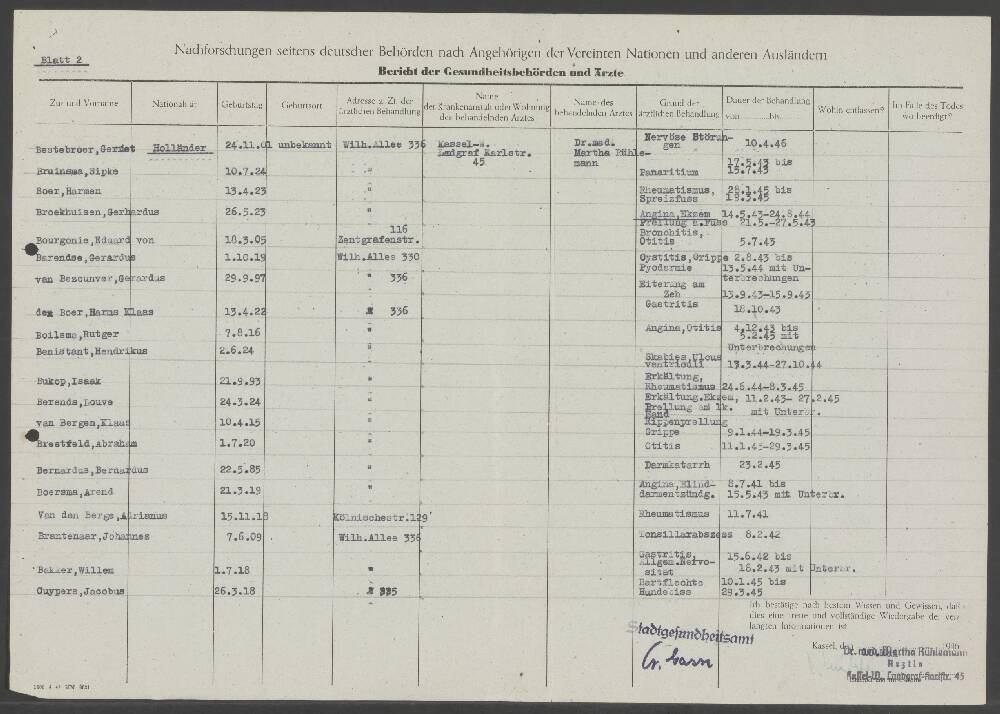 Blatt 2
Nachforschungen seitens deutscher Behörden nach Angehörigen der Vereinten Nationen und anderen Ausländern
Bericht der Gesundheitsbehörden und Ärzte
Zu- und Vorname
Nationalität
Geburtstag
Geburtsort
Adresse z. Zt. der ärztlichen Behandlung
Name der Krankenanstalt oder Wohnung des behandelnden Arztes
Name des behandelnden Arztes
Grund der ärztlichen Behandlung
Dauer der Behandlung von bis
Wohin entlassen?
Im Falle des Todes wo beerdigt?
Bestebroer, Holländer 24.11.01 unbekannt Wilh.Allee 336 Kassel-W. Landgraf Karlstr. 45 Dr.med. Martha Rühlemann Nervöse Störungen 10.4.46
Bruinsma,Sipke 10.7.24 " Panaritium 17.5.43 bis 15.7.43
Boer,Harmen 13.4.23 " Rheumatismus, Spreizfuss 28.1.45 bis 19.3.45
Broekhuisen,Gerhardus 26.5.23 " Angina,Ekzem 14.5.43-24.8.44
Prellung a.Fuss 21.5.-27.5.43
Bourgonje,Eduard von 18.3.05 116 Zentgrafenstr. Bronchitis, Otitis 5.7.43
Barendse,Gerardus 1.10.19 Wilh.Allee 330 Cystitis,Grippe 2.8.43 bis
Pyodermie 13.5.44 mit Unterbrechungen
van Bezounver,Gerardus 29.9.97 " 336 Eiterung am Zeh 13.9.43-15.9.43
der Boer,Harms Klaas 13.4.22 " 336 Gastritis 18.10.43
Boilsma,Rutger 7.8.16 " Angina,Otitis 4.12.43 bis 5.2.45 mit Unterbrechungen
Benistant,Hendrikus 2.6.24 " Skabies,Ulcus ventriculi 13.3.44-27.10.44
Bukop,Isaak 21.9.93 " Erkältung, Rheumatismus 24.6.44-8.3.45
Berends,Louve 24.3.24 " Erkältung.Ekzem, 11.2.43- 27.2.45
Prellung am lk. Hand mit Unterbr.
van Bergen,Klaus 10.4.15 " Rippenprellung Grippe 9.1.44-19.3.45
Brestfeld,Abraham 1.7.20 " Otitis 11.1.45-29.3.45
Bernardus,Bernardus 22.5.85 " Darmkatarrh 23.2.45
Boersma,Arend 21.3.19 " Angina,Blinddarmentzündg. 8.7.41 bis 15.5.43 mit Unterbr.
Van den Berge,Adrianus 15.11.18 Kölnischestr.129 Rheumatismus 11.7.41
Brantenaar,Johannes 7.6.09 Wilh.Allee 336 Tonsillarabszess 8.2.42
Bakker,Willem 1.7.18 " Gastritis, Allgem.Nervosität 15.6.42 bis 18.2.43 mit Unterbr.
Cuypers,Jacobus 26.3.18 " 335 Bartflechte Hundebiss 10.1.45 bis 29.3.45
Ich bestätige nach bestem Wissen und Gewissen, daß
dies eine treue und vollständige Wiedergabe der verlangten Informationen ist
Stadtgesundheitsamt
Kassel, den 1946
Dr. med. Martha Rühlemann
Ärztin
Kassel-W., Landgraf-Karlstr. 45